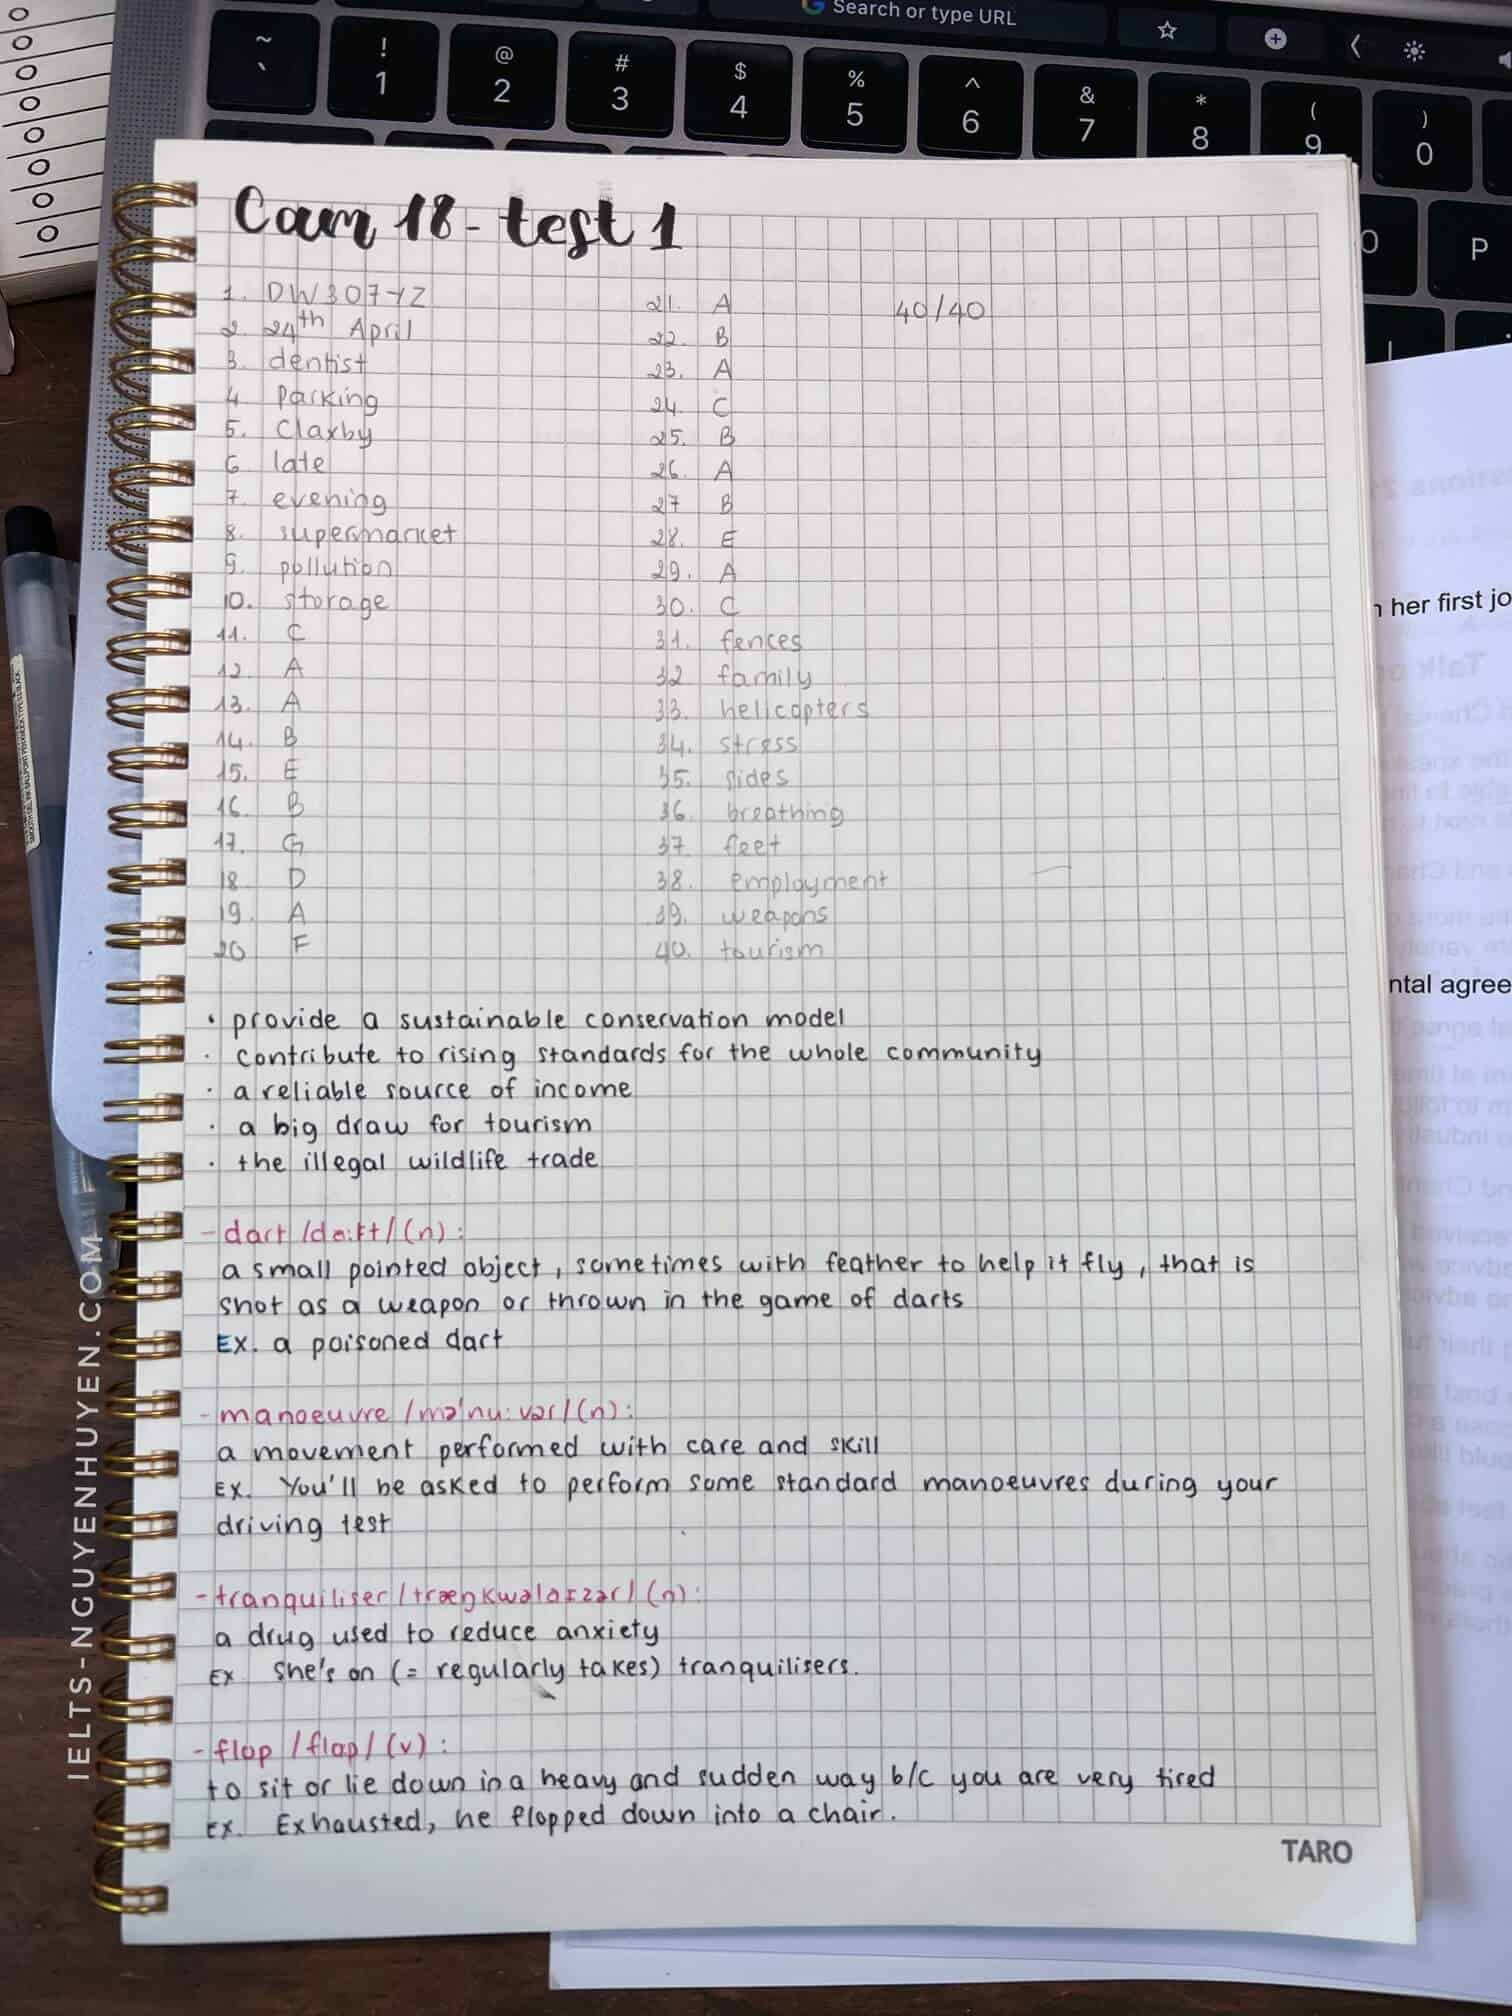 Search or type URL
~ ! @ # $ % ^ & * ( )
` 1 2 3 4 5 6 7 8 9 0
P
Cam 18 - test 1
1. DW307YZ
2. 24th April
3. dentist
4. parking
5. Claxby
6. late
7. evening
8. supermarket
9. pollution
10. storage
11. C
12. A
13. A
14. B
15. E
16. B
17. G
18. D
19. A
20 F
21. A
22. B
23. A
24. C
25. B
26. A
27 B
28. E
29. A
30. C
31. fences
32 family
33. helicopters
34. stress
35. sides
36. breathing
37. feet
38. employment
39. weapons
40. tourism
40/40
• provide a sustainable conservation model
· contribute to rising standards for the whole community
· a reliable source of income
· a big draw for tourism
· the illegal wildlife trade
- dart /dɑːrt/ (n):
a small pointed object, sometimes with feather to help it fly, that is
shot as a weapon or thrown in the game of darts
Ex. a poisoned dart
- manoeuvre /məˈnuːvər/ (n):
a movement performed with care and skill
Ex. You'll be asked to perform some standard manoeuvres during your
driving test
- tranquiliser /træŋkwəlaɪzər/ (n):
a drug used to reduce anxiety
Ex She's on (= regularly takes) tranquilisers.
- flop /flɑp/ (v):
to sit or lie down in a heavy and sudden way b/c you are very tired
Ex. Exhausted, he flopped down into a chair.
TARO
her first jo
ntal agree
IELTS-NGUYENHUYEN.COM